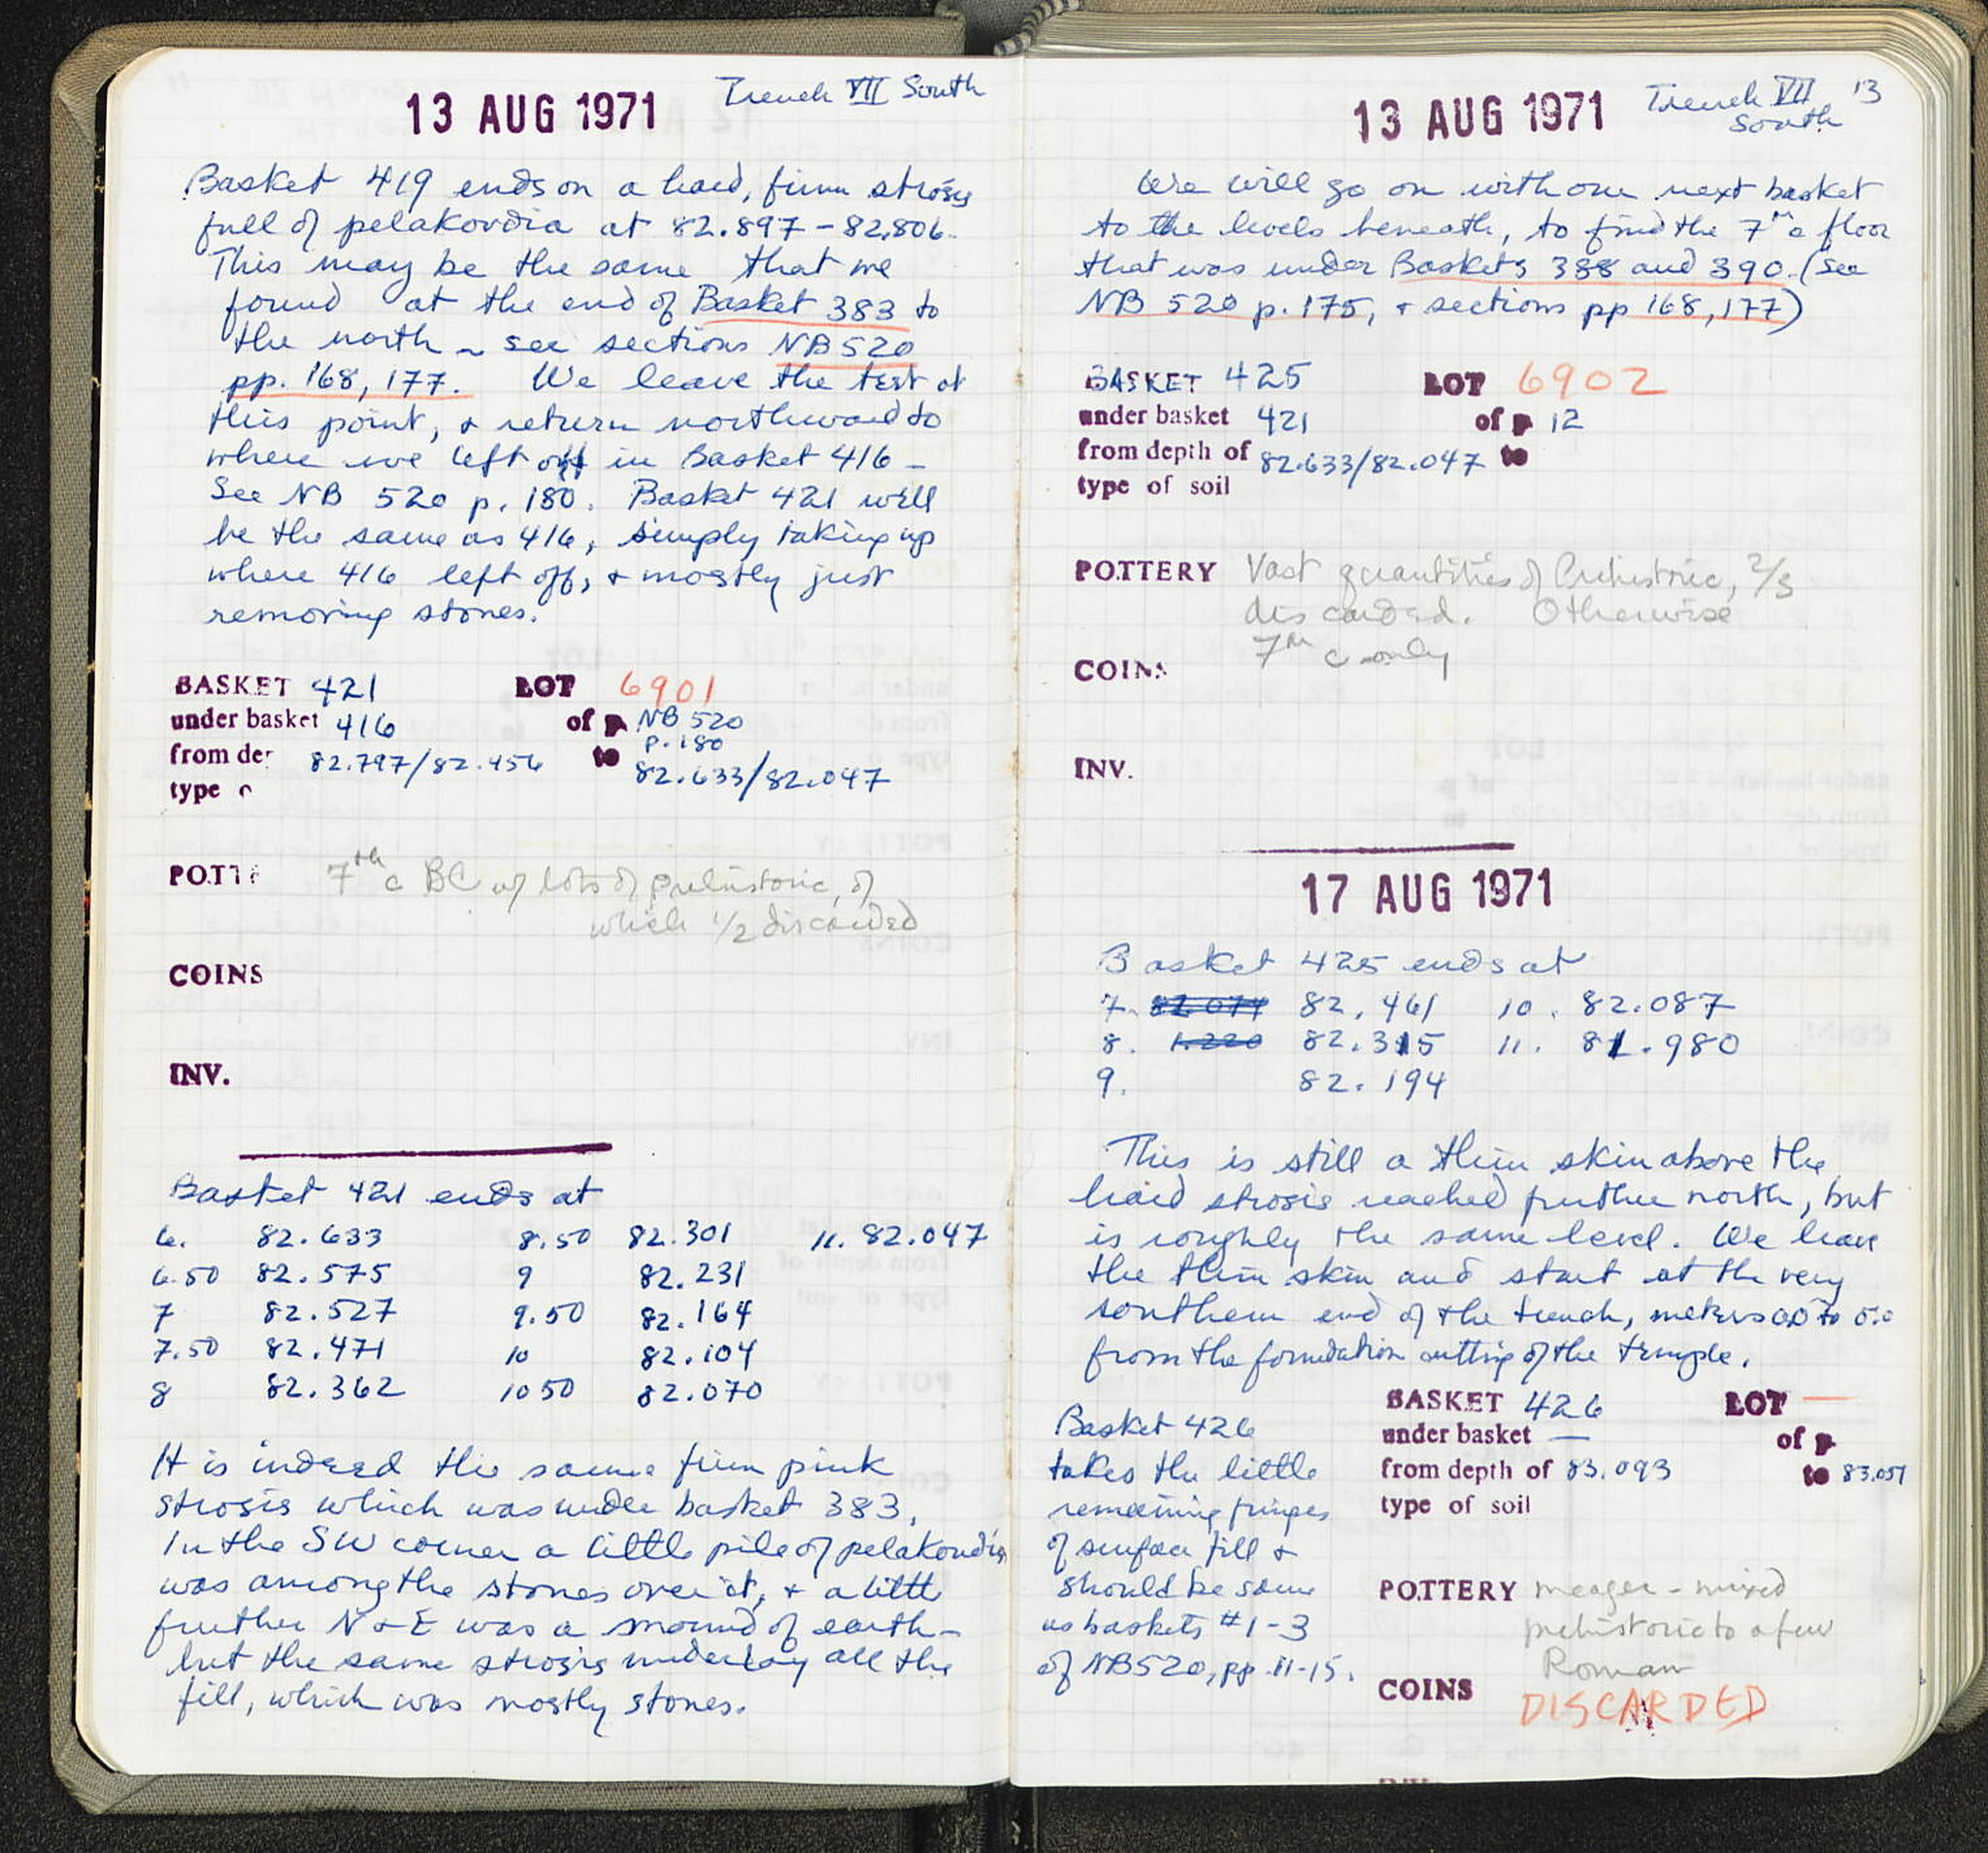 13 AUG 1971 Trench VII South
Basket 419 ends on a hard, firm strosis
full of pelakovdia at 82.897 - 82.806.
This may be the same that we
found at the end of Basket 383 to
the north - see sections NB 520
pp. 168, 177. We leave the test at
this point, & return northward to
where we left off in Basket 416 -
See NB 520 p. 180. Basket 421 will
be the same as 416, simply taking up
where 416 left off, & mostly just
removing stones.
BASKET 421 LOT 6901
under basket 416 of p NB 520
p. 180
from dep 82.797/82.456 to 82.633/82.047
type o
POTTE 7th c BC w/ lots of prehistoric, of
which 1/2 discarded
COINS
INV.
Basket 421 ends at
6. 82.633 8.50 82.301 11. 82.047
6.50 82.575 9 82.231
7 82.527 9.50 82.164
7.50 82.471 10 82.104
8 82.362 10 50 82.070
It is indeed the same firm pink
strosis which was under basket 383.
In the SW corner a little pile of pelakoudia
was among the stones over it, & a little
further N & E was a mound of earth -
but the same strosis underlay all the
fill, which was mostly stones.
13 AUG 1971 Trench VII South 13
We will go on with our next basket
to the levels beneath, to find the 7th c floor
that was under Baskets 388 and 390. (See
NB 520 p. 175, & sections pp 168, 177)
BASKET 425 LOT 6902
under basket 421 of p 12
from depth of 82.633/82.047 to
type of soil
POTTERY Vast quantities of Prehistoric, 2/3
discarded. Otherwise
7th c only
COINS
INV.
17 AUG 1971
Basket 425 ends at
7. 82.077 82.461 10. 82.087
8. 1.220 82.315 11. 81.980
9. 82.194
This is still a thin skin above the
hard strosis reached further north, but
is roughly the same level. We leave
the thin skin and start at the very
southern end of the trench, meters 0.0 to 5.0
from the foundation cutting of the temple.
Basket 426
takes the little
remaining fringes
of surface fill &
should be same
as baskets #1-3
of NB520, pp. 11-15.
BASKET 426 LOT —
under basket — of p
from depth of 83.093 to 83.051
type of soil
POTTERY meager - mixed
prehistoric to a few
Roman
COINS DISCARDED
INV.